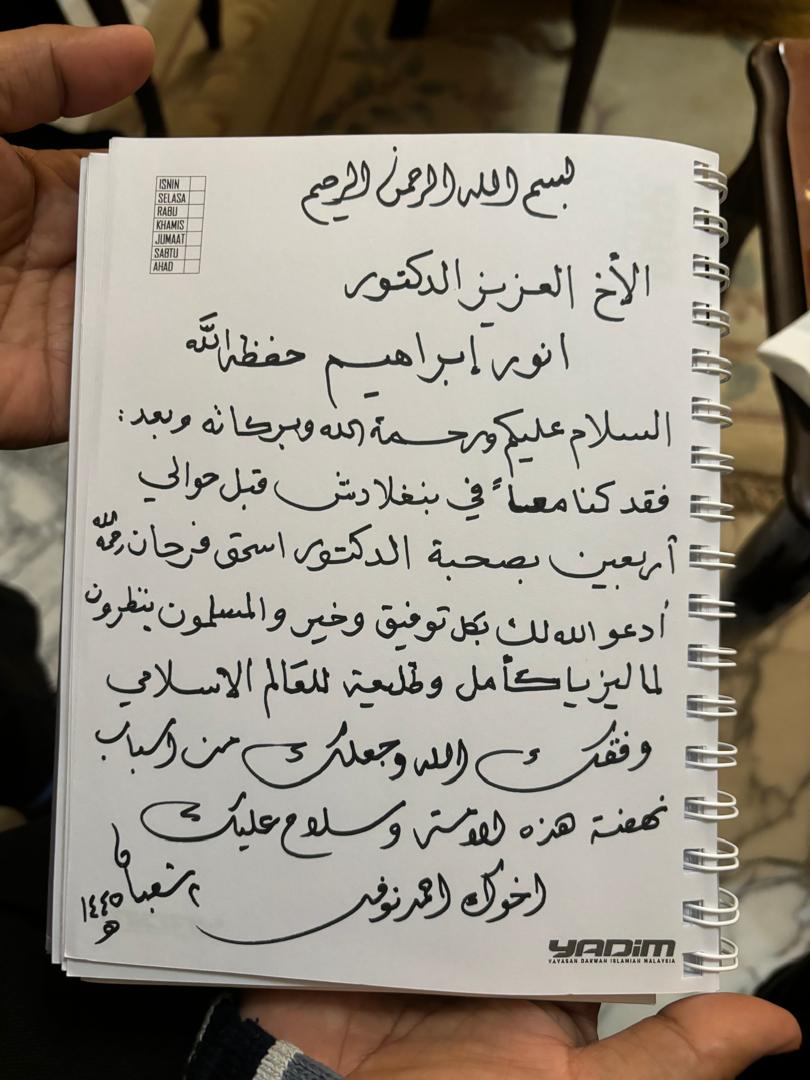 بسم الله الرحمن الرحيم
ISNIN
SELASA
RABU
KHAMIS
JUMAAT
SABTU
AHAD
الأخ العزيز الدكتور
انور إبراهيم حفظه الله
السلام عليكم ورحمة الله وبركاته وبعد:
فقد كنا معاً في بنغلادش قبل حوالي
أربعين بصحبة الدكتور اسحق فرحان رحمه الله
أدعو الله لك بكل توفيق وخير والمسلمون ينظرون
لماليزيا كأمل وطليعة للعالم الاسلامي
وفقك الله وجعلك من اسباب
نهضة هذه الامة وسلام عليك
اخوك احمد نوفل
٢ شعبان
١٤٤٥ هـ
YADIM
YAYASAN DAKWAH ISLAMIAH MALAYSIA